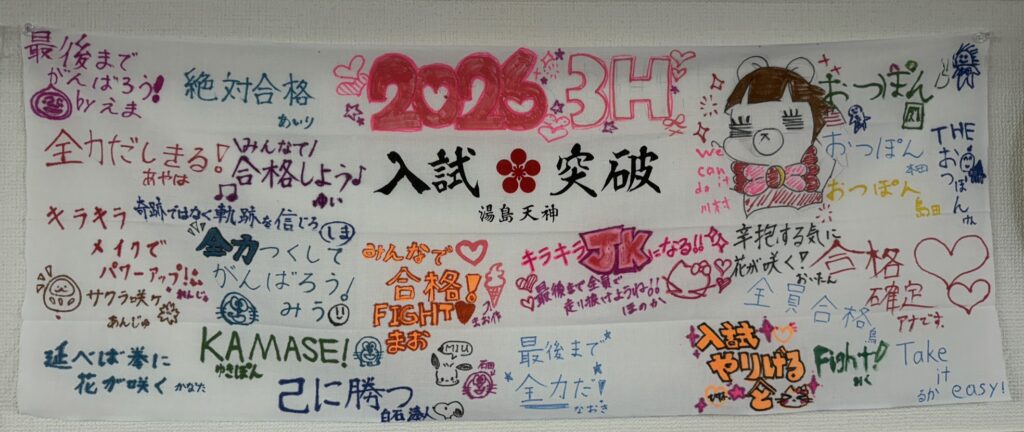 最後まで
がんばろう!
by えま
絶対合格
あいり
2026 3H
おっぽん
全力だしきる!
あやは
みんなで
合格しよう♪
ゆい
入試 突破
湯島天神
We
can
do it
川村
おっぽん
おっぽん
島田
THE
おっぽん
キラキラ
メイクで
パワーアップ!!
サクラ咲ケ
あんじゅ
奇跡ではなく軌跡を信じろ
しま
全力つくして
がんばろう!
みう
みんなで
合格!
FIGHT
まお
キラキラJKになる!!
最後まで全員で
走り抜けようね
ほのか
辛抱する気に
花が咲く!
おいたん
全員合格
合格
確定
アナです.
延べば巻に
花が咲く かなた
KAMASE!
ゆきぽん
己に勝つ
MIU
石田
最後まで
全力だ!
なおき
入試
やりげる
Fight!
Take
it
easy!
るか